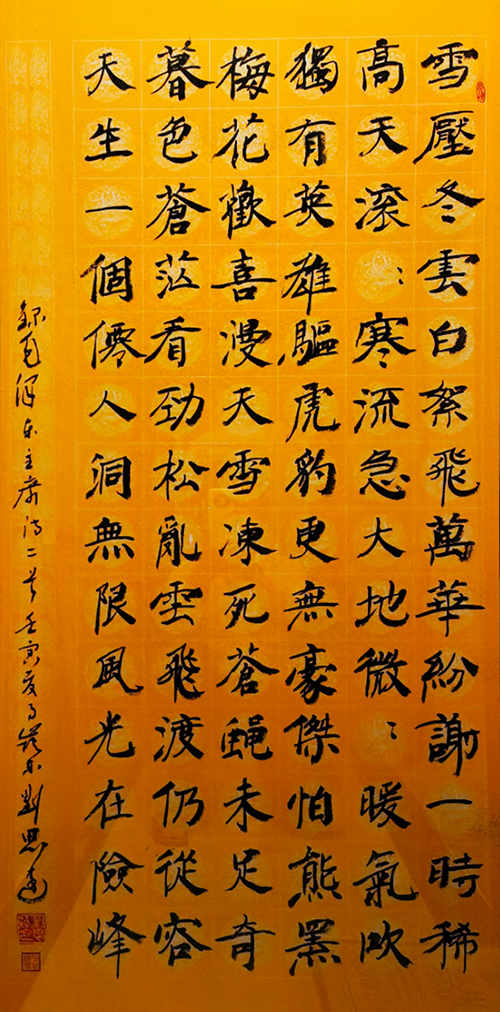 雪壓冬雲白絮飛萬華紛謝一時稀
高天滾〻寒流急大地微〻暖氣吹
獨有英雄驅虎豹更無豪傑怕熊羆
梅花歡喜漫天雪凍死蒼蠅未足奇
暮色蒼茫看勁松亂雲飛渡仍從容
天生一個僊人洞無限風光在險峰
錄毛澤东主席詩二首 壬寅夏月 劉思